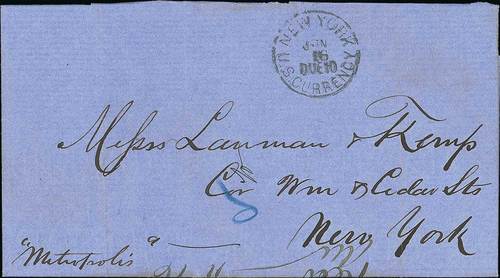 NEW YORK
JUN
16
DUE 10
U.S. CURRENCY
Messrs Lanman & Kemp
Cor Wm & Cedar Sts
New York
"Metropolis"